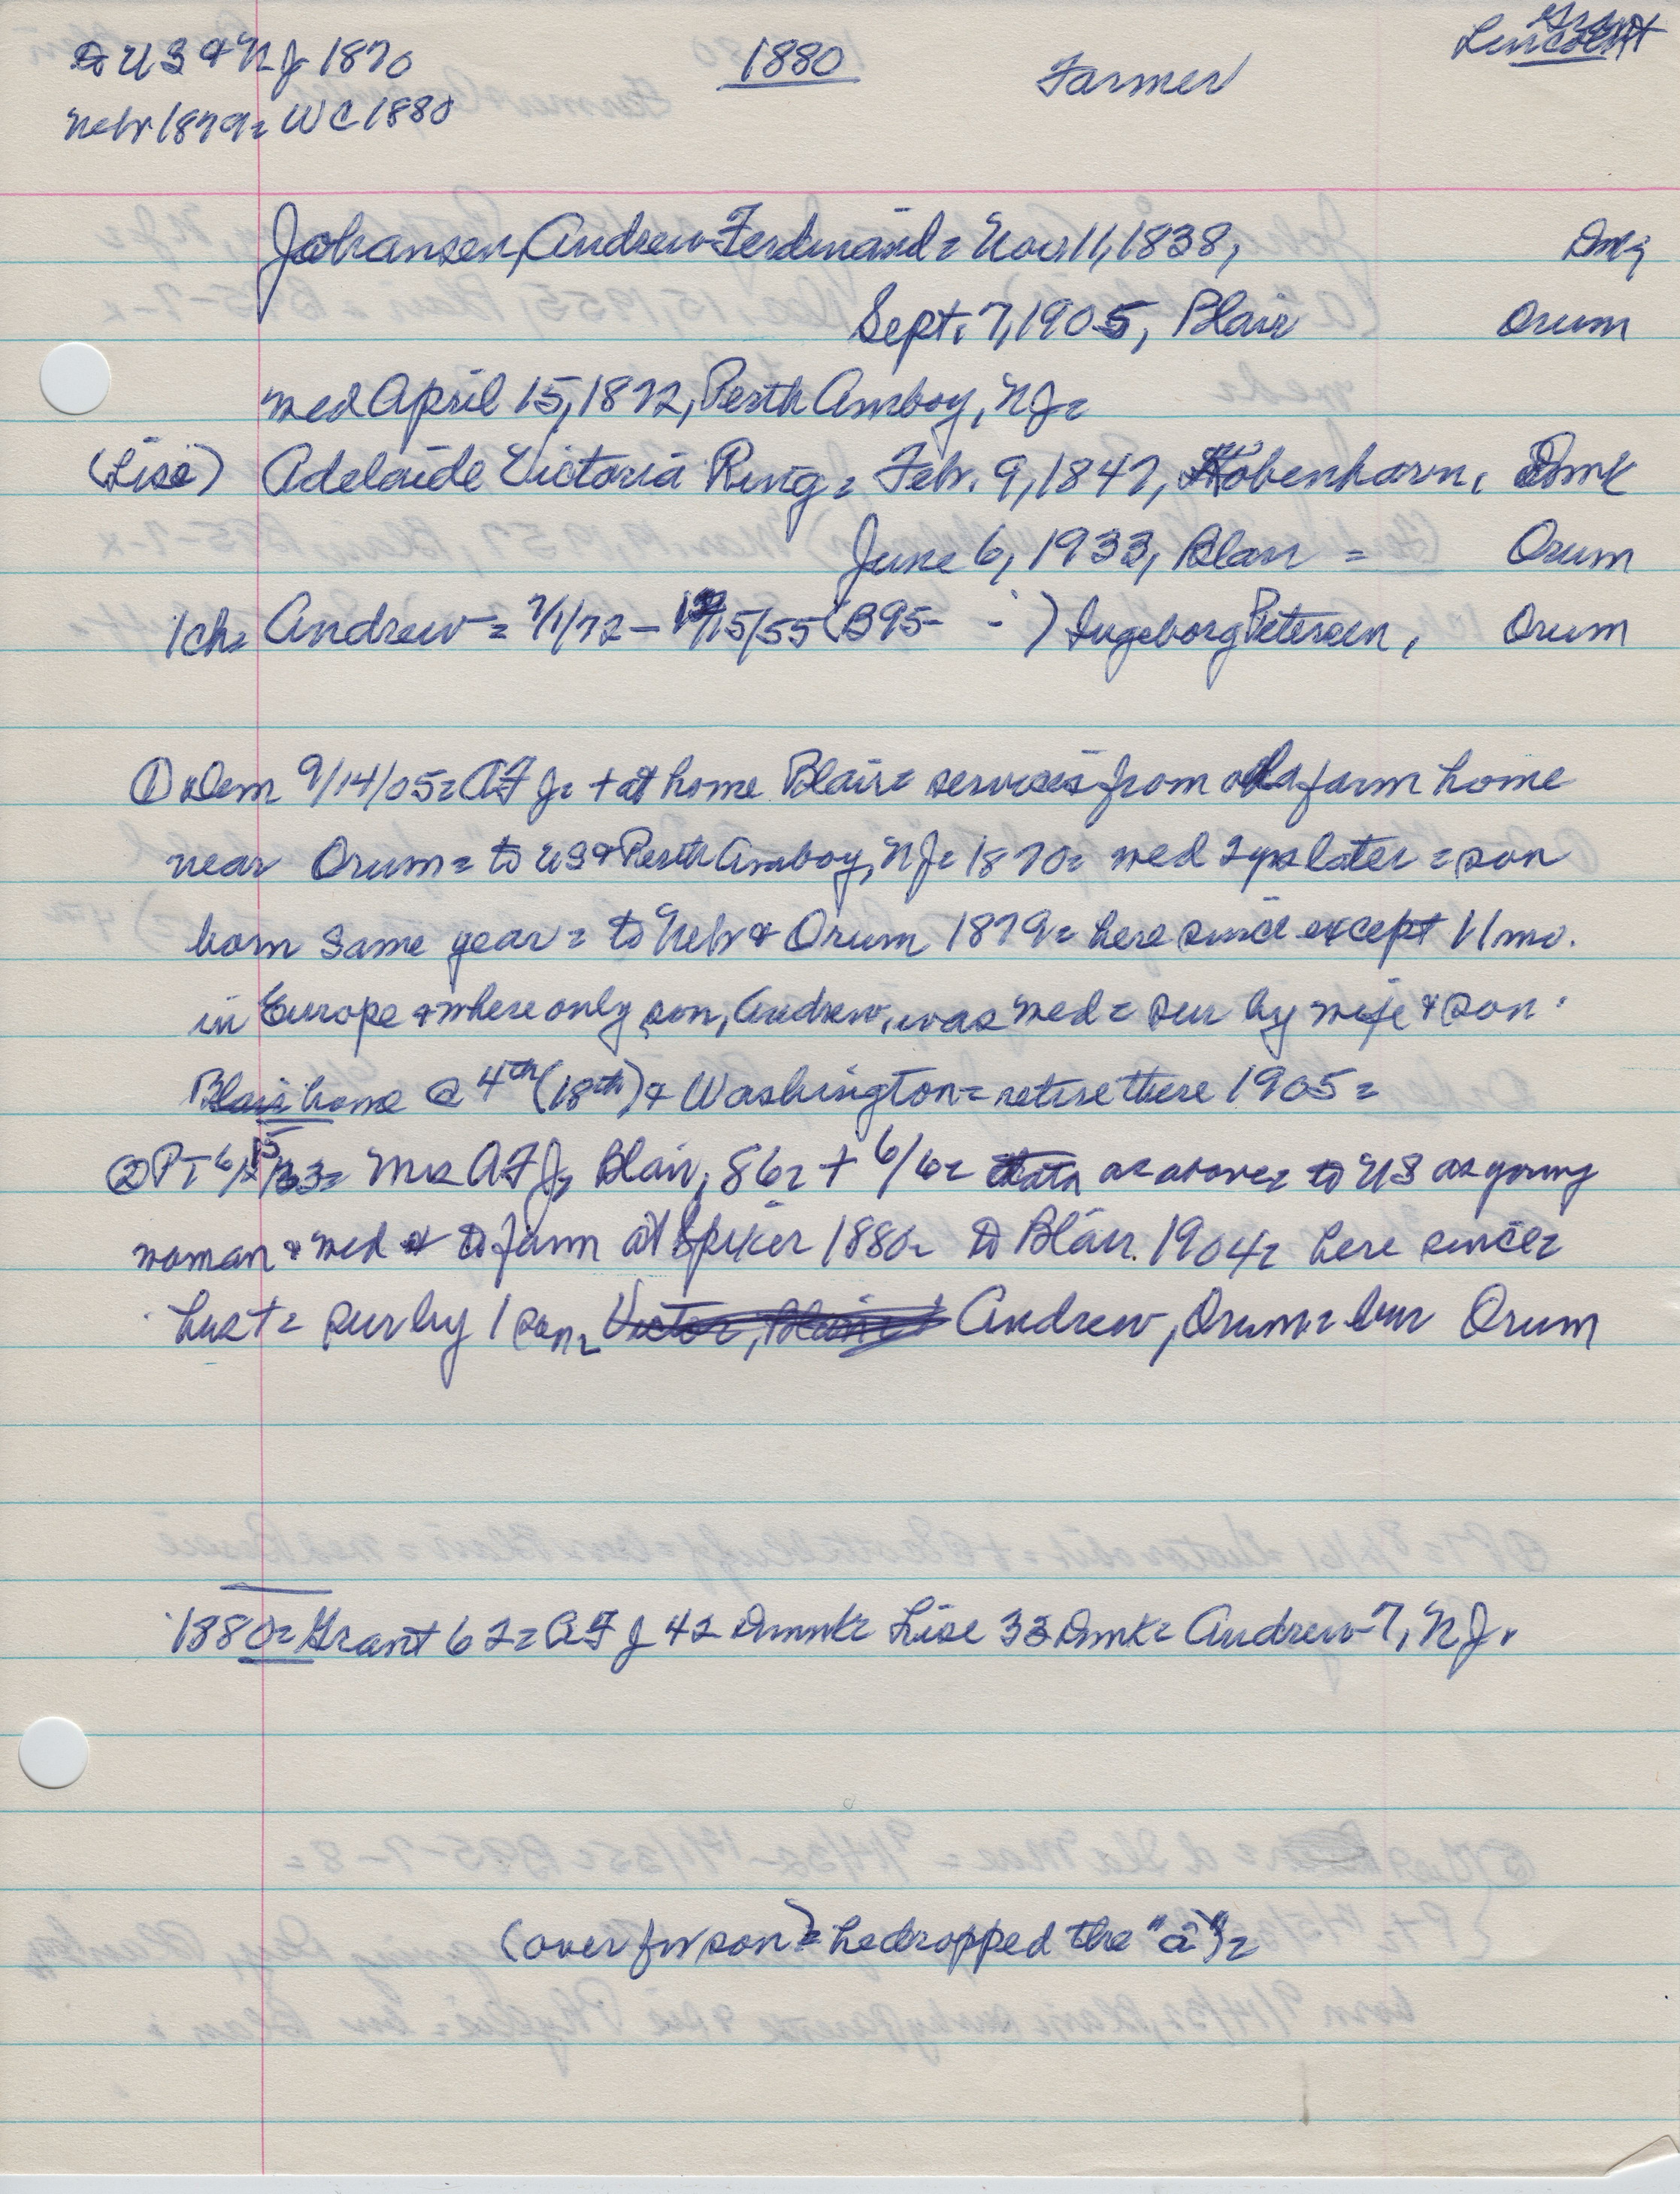 to US & NJ 1870
1880
Farmer
Grant
Lincoln
Nebr 1879= WC 1880
Johansen, Andrew Ferdinand= Nov. 11, 1838, Dmk
Sept. 7, 1905, Blair Orum
wed April 15, 1872, Perth Amboy, NJ=
(Lise) Adelaide Victoria Ring= Feb. 9, 1847, Kobenhavn, Dmk
June 6, 1933, Blair = Orum
1ch= Andrew= 7/1/72 - 12/15/55 (B95- - ) Ingeborg Petersen, Orum
① Dem 9/14/05= AFJ= + at home Blair= services from old farm home
near Orum= to US & Perth Amboy, NJ= 1870= wed 2 yrs later= son
born same year= to Nebr & Orum 1879= here since except 11 mo.
in Europe & where only son, Andrew, was wed= sur by wife & son.
Blair home @ 4th (18th) & Washington= retire there 1905=
② PT 6/15/33= Mrs AFJ, Blair, 86= + 6/6= data as above= to US as young
woman & wed & to farm at Spiker 1880= to Blair 1904= here since=
hus += sur by 1 son= Victor, Blair= Andrew, Orum= bur Orum
1880= Grant 62= AFJ 42 Dmk= Lise 33 Dmk= Andrew 7, NJ.
(over for son)= he dropped the "a")=